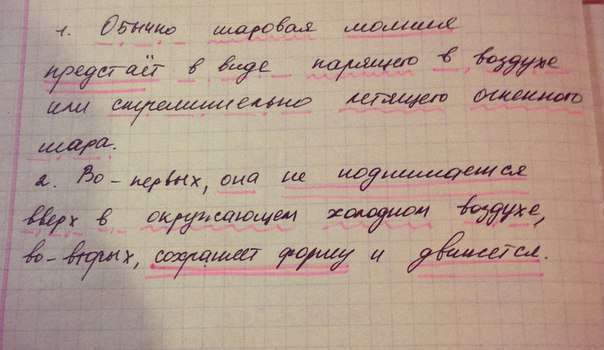 1. Обычно шаровая молния
предстаёт в виде парящего в воздухе
или стремительно летящего огненного
шара.
2. Во-первых, она не поднимается
вверх в окружающем холодном воздухе,
во-вторых, сохраняет форму и движется.